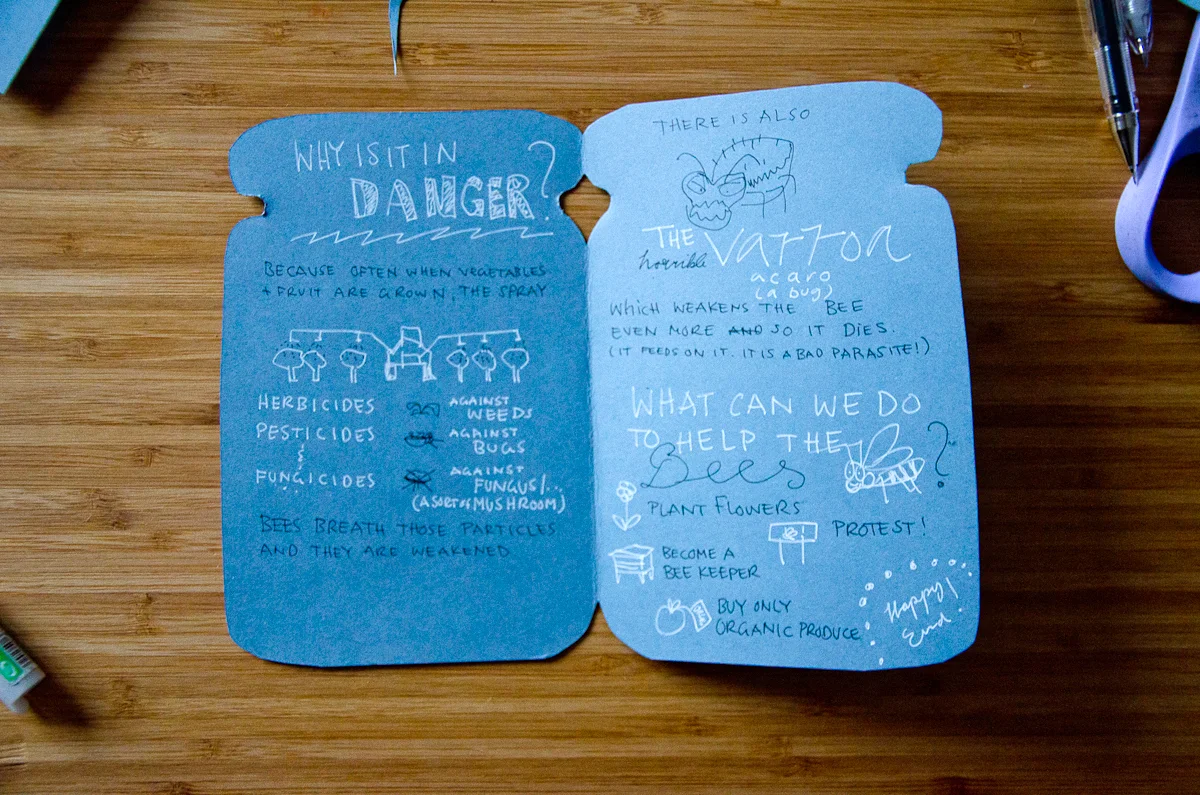 WHY IS IT IN
DANGER?
BECAUSE OFTEN WHEN VEGETABLES
+ FRUIT ARE GROWN, THE SPRAY
HERBICIDES
AGAINST
WEEDS
PESTICIDES
AGAINST
BUGS
&
FUNGICIDES
AGAINST
FUNGUS/...
(A SORT OF MUSHROOM)
BEES BREATH THOSE PARTICLES
AND THEY ARE WEAKENED
THERE IS ALSO
THE
horrible
varroa
acaro
(a bug)
WHICH WEAKENS THE BEE
EVEN MORE AND SO IT DIES.
(IT FEEDS ON IT. IT IS A BAD PARASITE!)
WHAT CAN WE DO
TO HELP THE
Bees?
PLANT FLOWERS
PROTEST!
BECOME A
BEE KEEPER
BUY ONLY
ORGANIC PRODUCE
Happy!
End